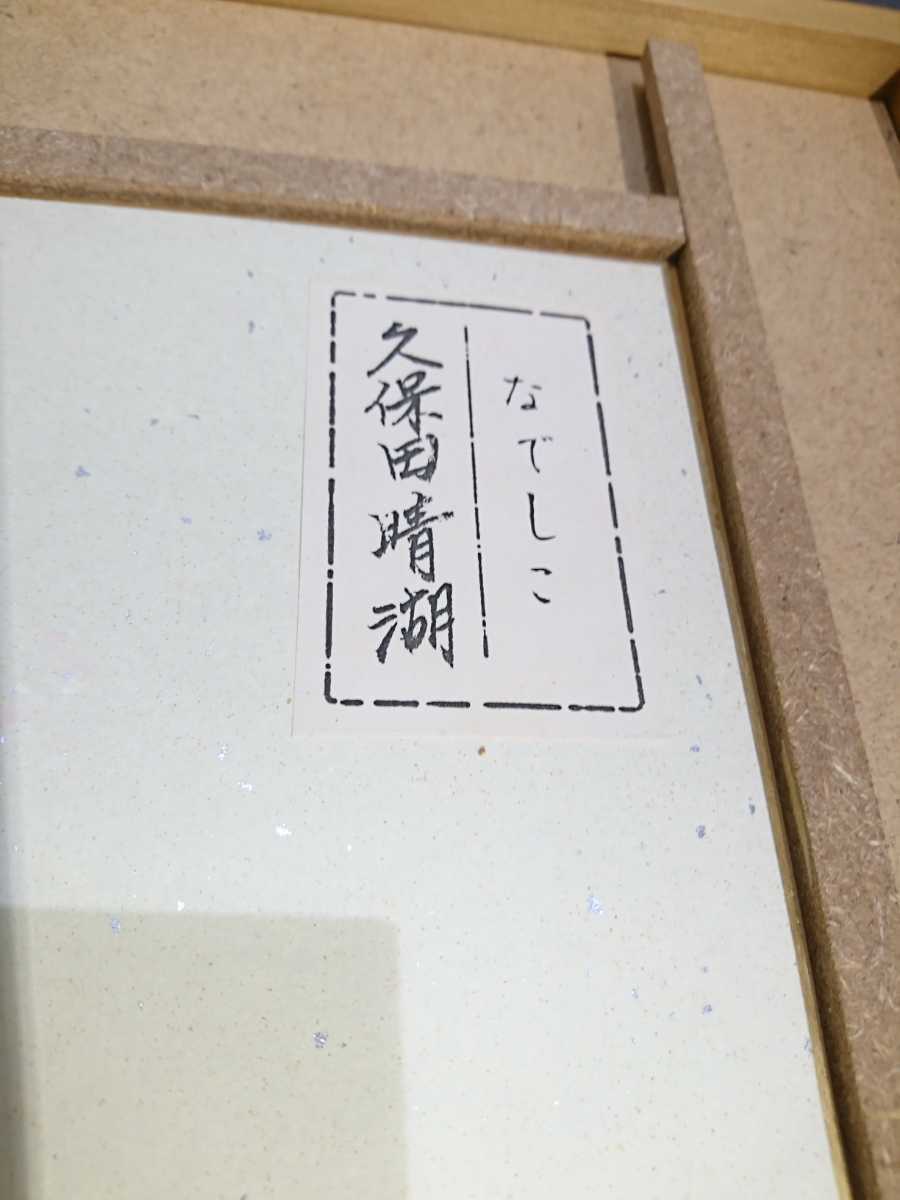 なでしこ
久保田晴湖